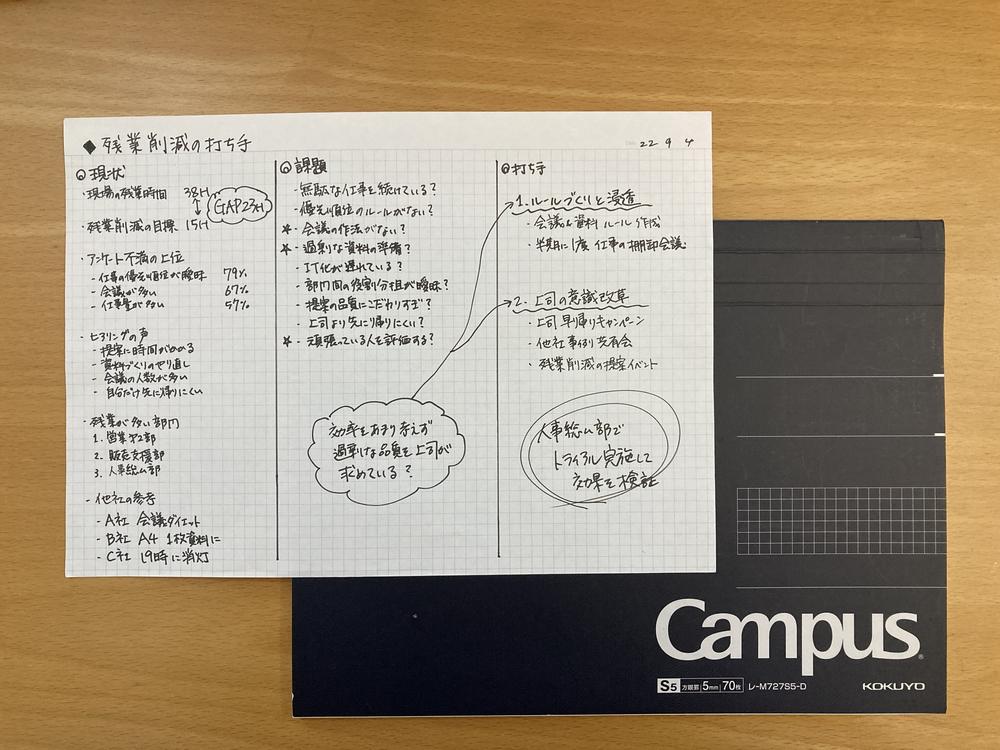 ◆ 残業削減の打ち手
22 9 4
◎ 現状
・現場の残業時間 38H
GAP23H
・残業削減の目標 15H
・アンケート不満の上位
- 仕事の優先順位が曖昧 79%
- 会議が多い 67%
- 仕事量が多い 57%
・ヒアリングの声
- 提案に時間がかかる
- 資料づくりのやり直し
- 会議の人数が多い
- 自分だけ先に帰りにくい
・残業が多い部門
1. 営業第2部
2. 販売支援部
3. 人事総ム部
- 他社の参考
- A社 会議ダイエット
- B社 A4 1枚資料に
- C社 19時に消灯
◎ 課題
- 無駄な仕事を続けている?
- 優先順位のルールがない?
★- 会議の作法がない?
★- 過剰な資料の準備?
- IT化が遅れている?
- 部門間の役割分担が曖昧?
- 提案の品質にこだわりすぎ?
- 上司より先に帰りにくい?
★- 頑張っている人を評価する?
効率をあまり考えず
過剰な品質を上司が
求めている?
◎ 打ち手
1. ルールづくりと浸透
- 会議&資料 ルール作成
- 半期に1度 仕事の棚卸会議
2. 上司の意識改革
- 上司早帰りキャンペーン
- 他社事例共有会
- 残業削減の提案イベント
人事総ム部で
トライアル実施して
効果を検証
Campus
S5 方眼罫 5mm 70枚 レ-M727S5-D
KOKUYO